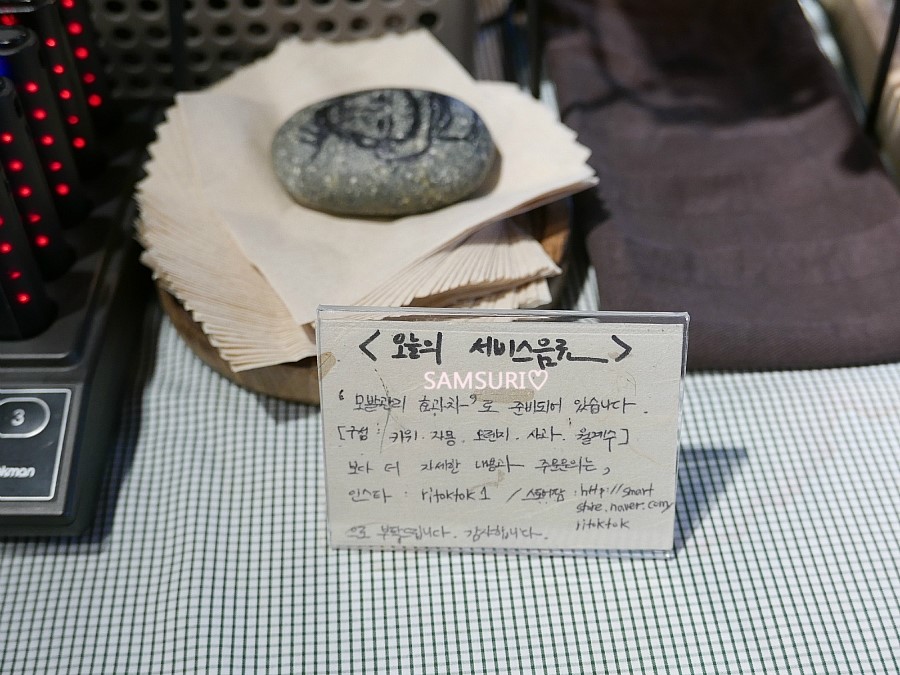 < 오늘의 서비스음료 >
SAMSURI♡
'모발관리 효과차'로 준비되어 있습니다.
[구성 : 키위. 자몽. 오렌지. 사과. 월계수]
보다 더 자세한 내용과 주문문의는,
인스타 : ritoktok1 / 스토어팜 : http://smart
store.naver.com/
ritoktok
으로 부탁드립니다. 감사합니다.
3